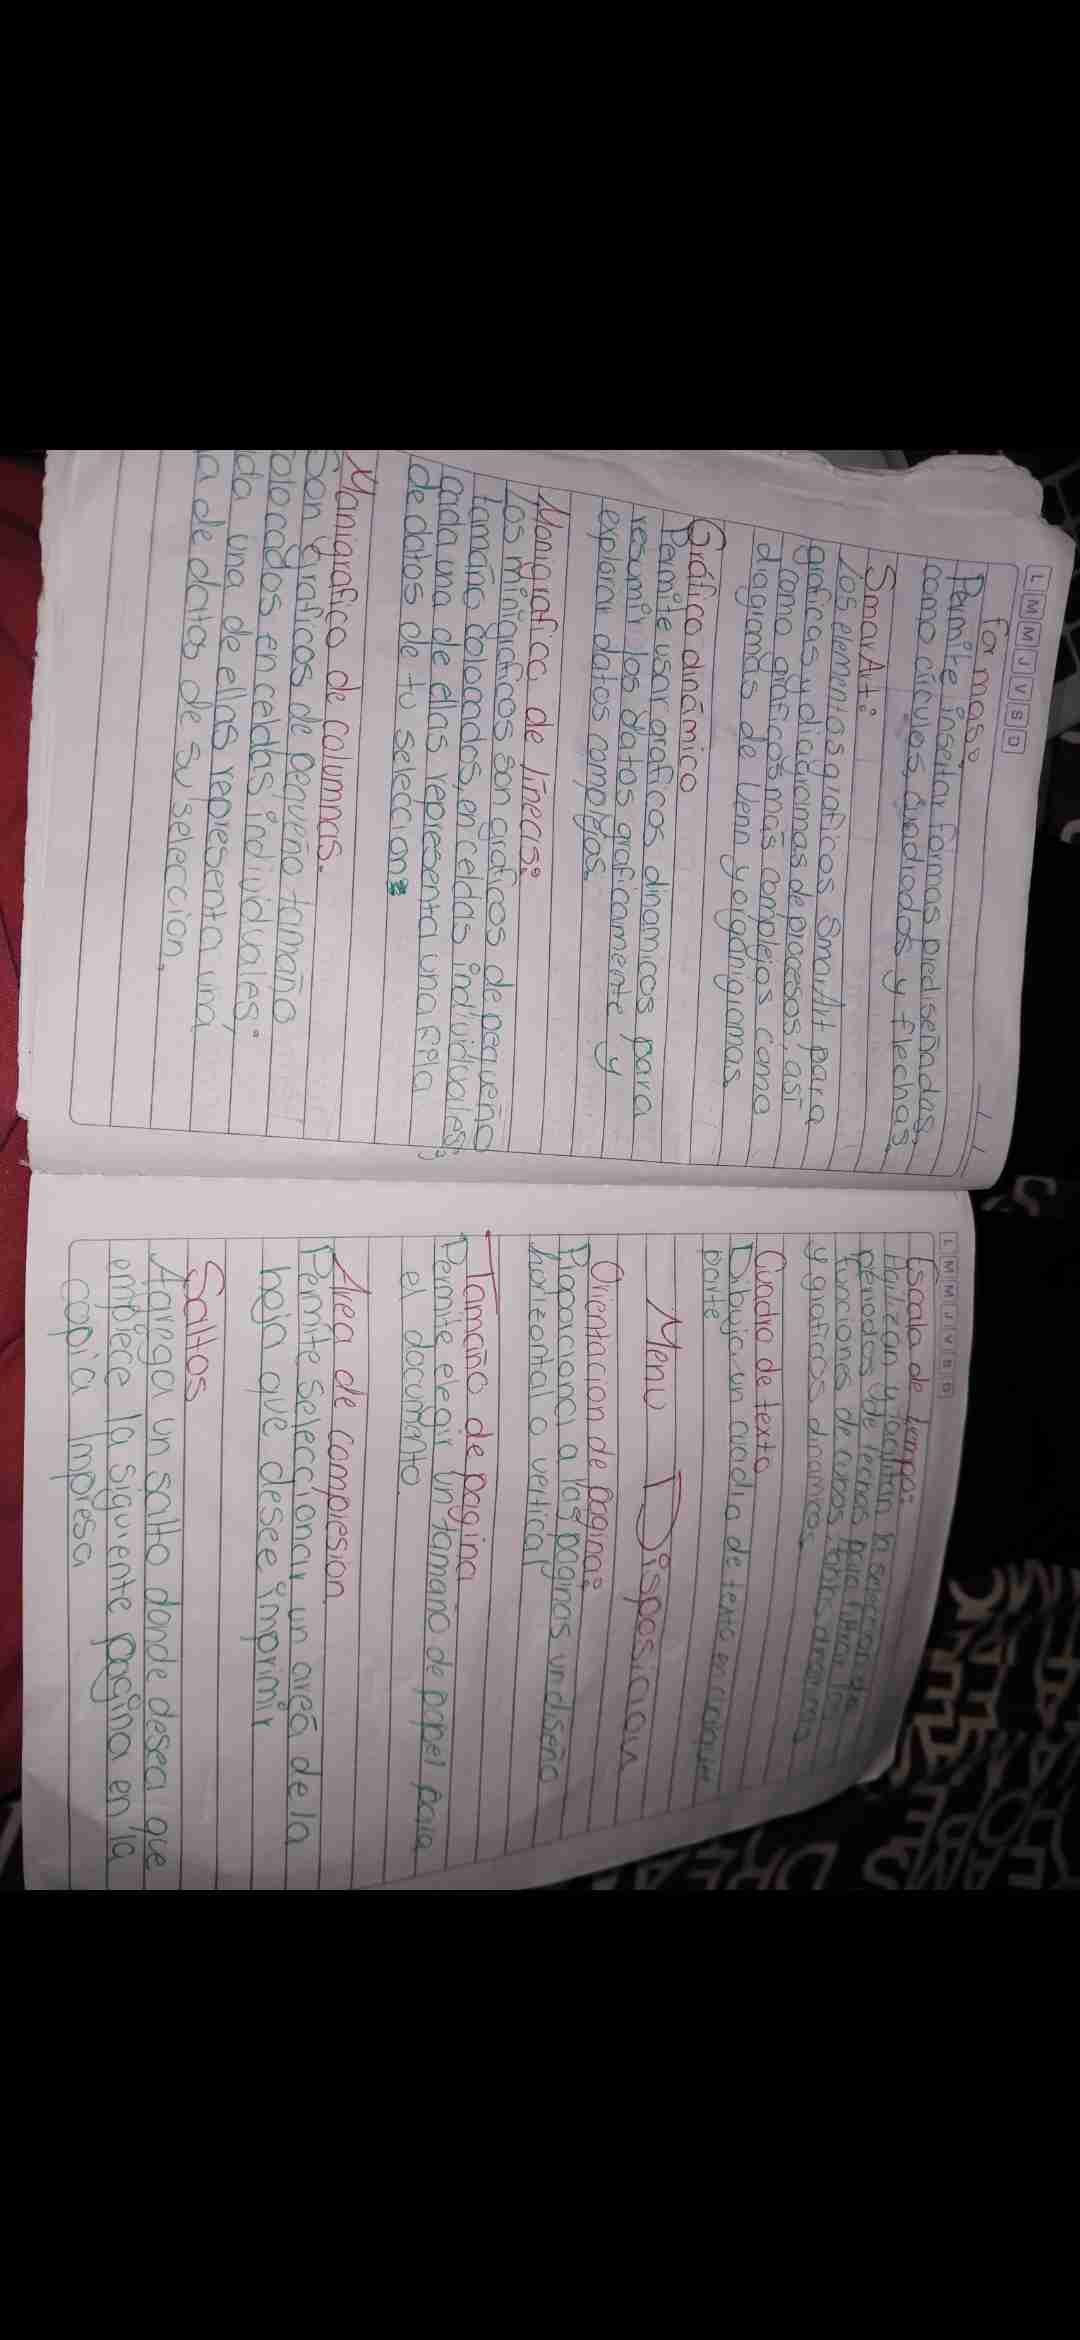 L M M J V S D
Formas:
Permite insertar formas prediseñadas,
como círculos, cuadrados y flechas
SmarArt:
Los elementos graficos SmarArt para
graficas y diagramas de procesos, asi
como graficos más complejos como
diagramas de Venn y organigramas
Gráfico dinámico
Permite usar graficos dinamicos para
resumir los datos graficamente y
explorar datos complejos
Manigrafico de líneas:
Los minigraficos son graficos de pequeño
tamaño colocados, en celdas individuales;
cada una de ellas representa una fila
de datos de tu seleccion:
Manigrafico de columnas.
Son graficos de pequeño tamaño
olocados en celdas individuales;
da una de ellas representa una
a de datos de su seleccion,
L M M J V S D
Escala de tiempo:
y facilitan la seleccion de
periodos de fechas para filtrar las
funciones de cubos, tablas dinamicas
y graficos dinamicos
Cuadro de texto
Dibuja un cuadro de texto en cualquier
parte
Menu Disposicion
Orientacion de pagina:
Propaciona a las paginas un diseño
horizontal o vertical
Tamaño de pagina
Permite elegir un tamano de papel para
el documento.
Area de compresion
Permite seleccionar un area de la
hoja que desee imprimir
Saltos
Agrega un salto donde desea que
empiece la siguiente pagina en la
copia impresa